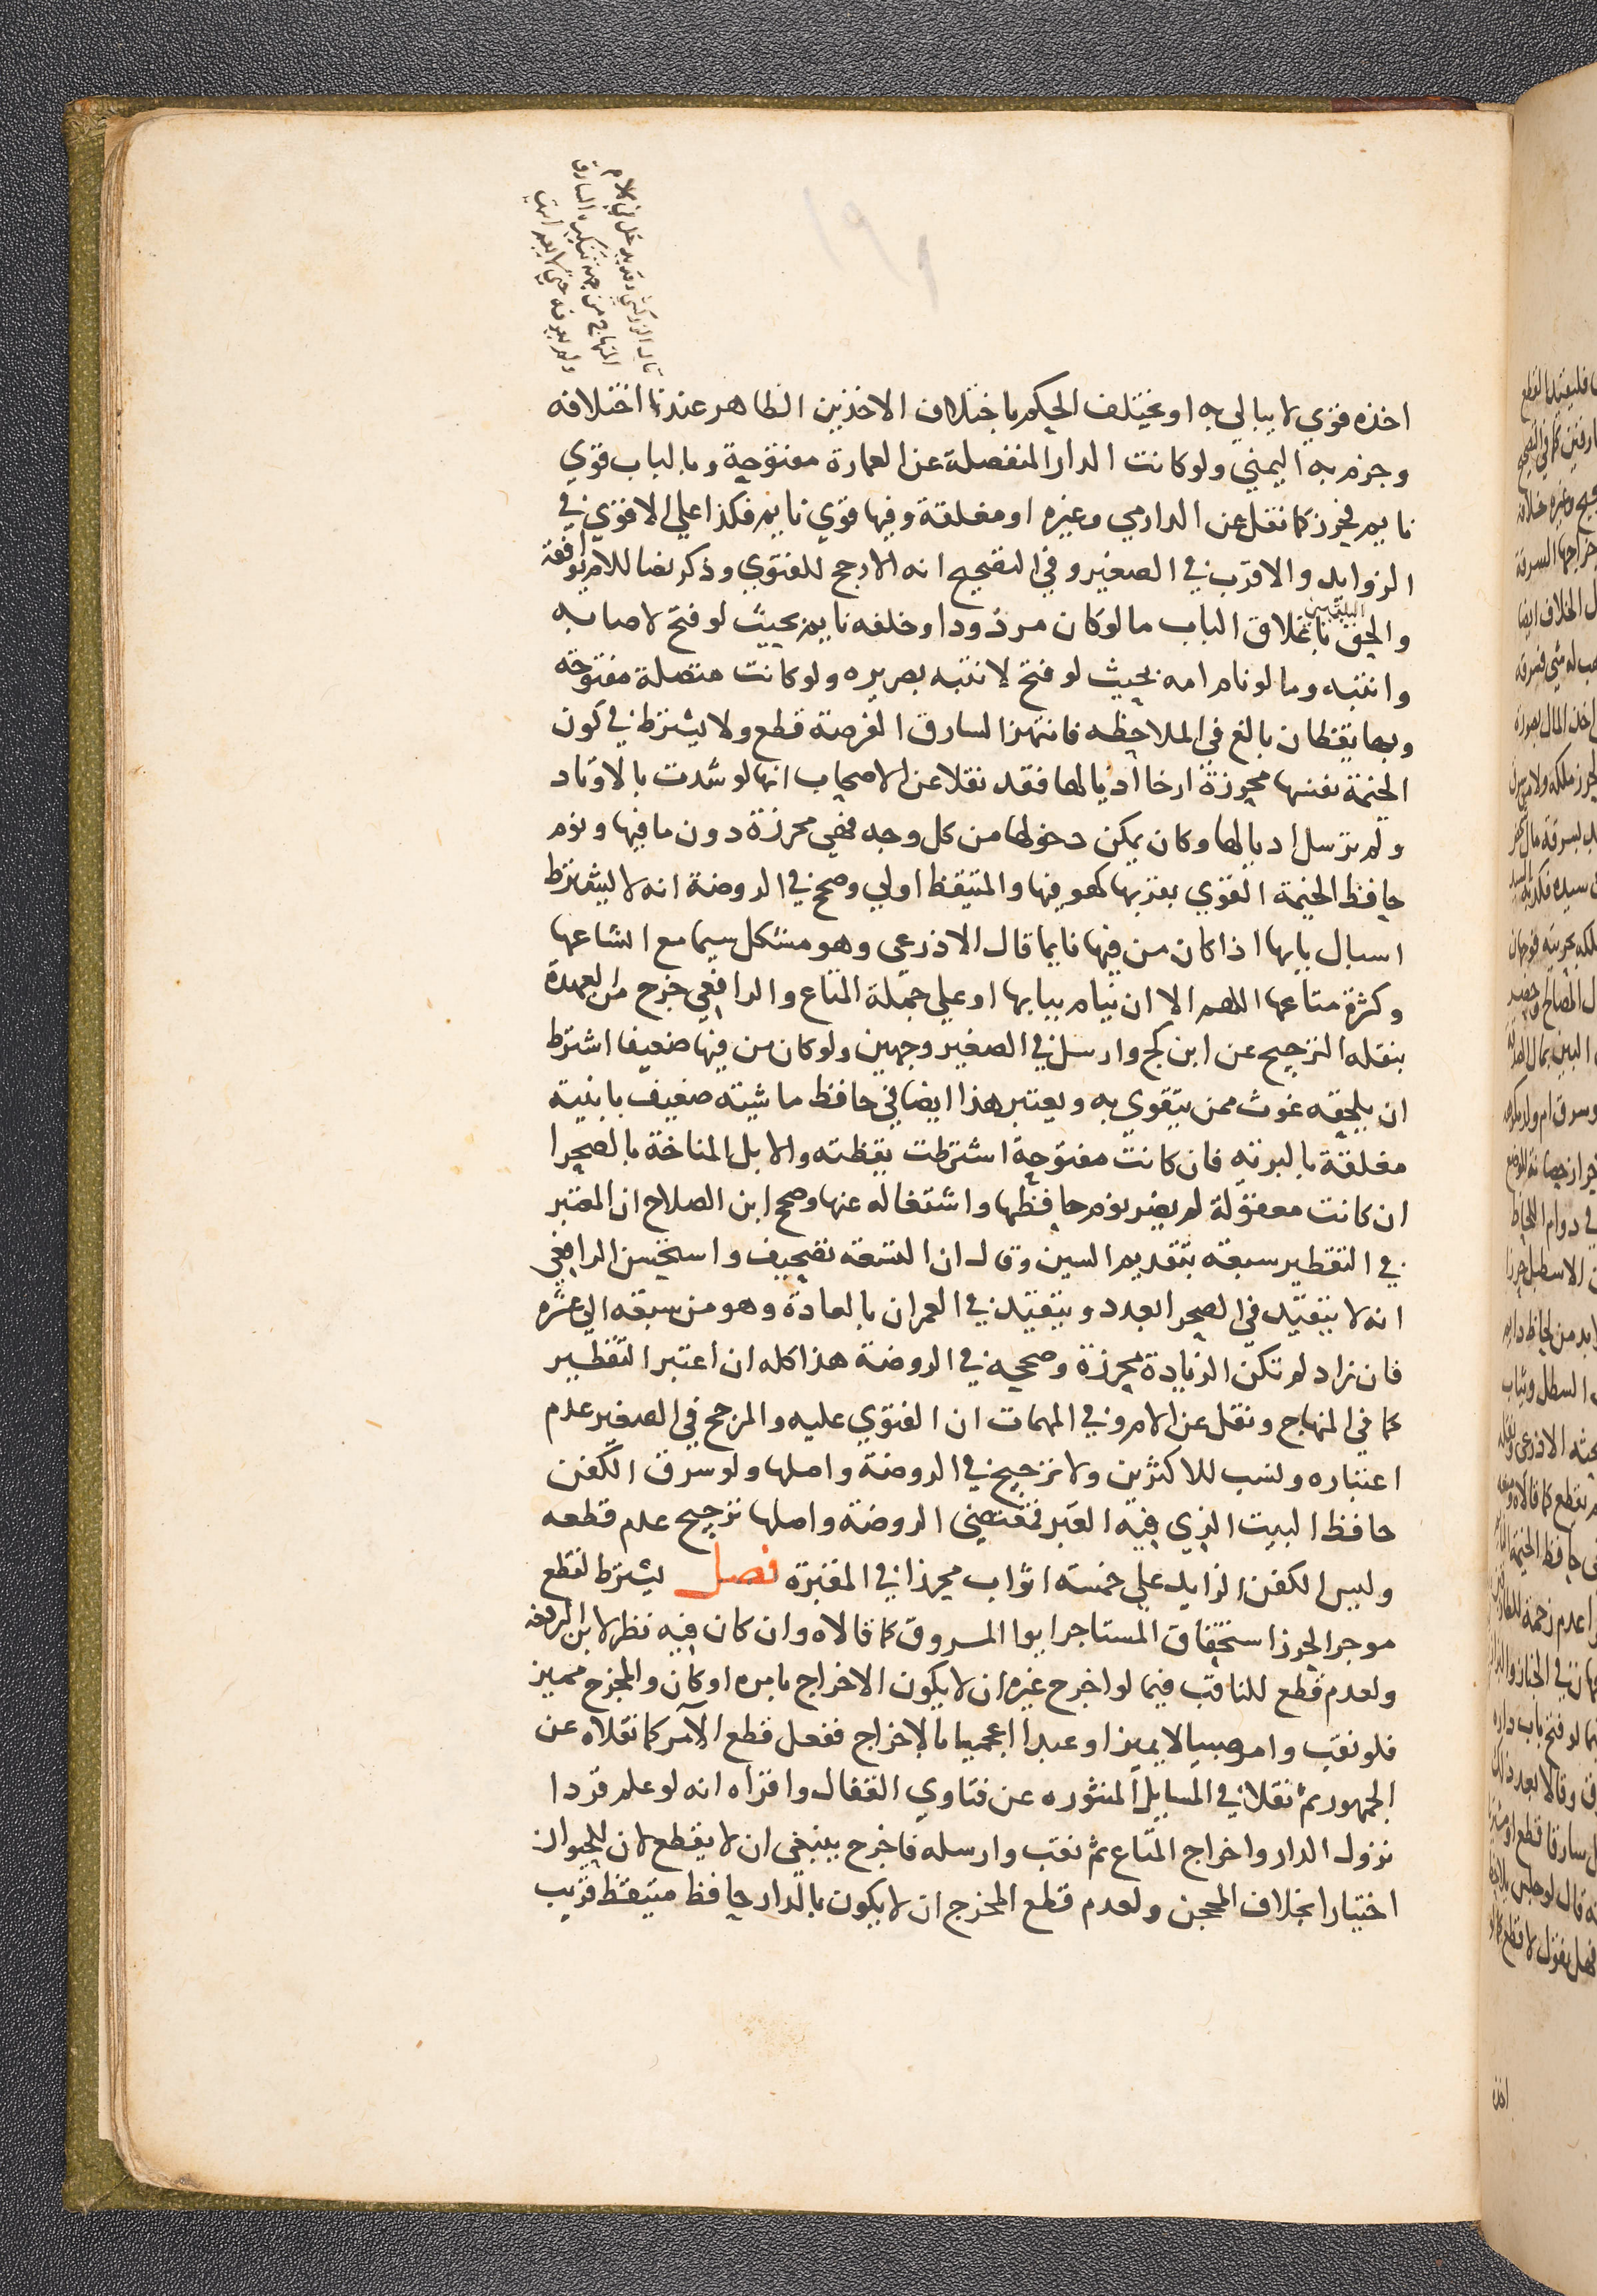 قال الزركشي وقد يدخل في كلام
المنهاج من جهة تنكيره السارق
ولم يعرفه حتى لا يعيد انتهى
اخذه قوي لا يبالي به او يختلف الحكم باختلاف الاخذين الظاهر عندنا اختلافه
وجزم به اليمني ولو كانت الدار المنفصلة عن العمارة مفتوحة وبالباب قوي
نايم فحرز كما نقل عن الدارمي وغيره او مغلقة وفيها قوي نايم فكذا علي الاقوي في
الزوايد والاقرب في الصغير وفي التصحيح انه الارجح للفتوي وذكر نصا للام يوافقه
والحق البلقيني باغلاق الباب ما لو كان مردودا وخلفه نايم بحيث لو فتح لاصابه
وانتبه وما لو نام امامه بحيث لو فتح لانتبه بصريره ولو كانت متصلة مفتوحة
وبها يقظان بالغ في الملاحظه فانتهز السارق الفرصة قطع ولا يشترط في كون
الخيمة نفسها محرزة ارخا اذيالها فقد نقلا عن الاصحاب انها لو شدت بالاوتاد
ولم ترسل اذيالها وكان يمكن دخولها من كل وجه فهي محرزة دون ما فيها ونوم
حافظ الخيمة القوي بقربها كهو فيها والمتيقظ اولي وصحح في الروضة انه لا يشترط
اسبال بابها اذا كان من فيها نايما قال الاذرعي وهو مشكل سيما مع اتساعها
وكثرة متاعها اللهم الا ان ينام ببابها او علي جملة المتاع والرافعي خرج من العهدة
بنقله الترجيح عن ابن كج وارسل في الصغير وجهين ولو كان من فيها ضعيفا اشترط
ان يلحقه غوث ممن يتقوى به ويعتبر هذا ايضا في حافظ ماشيته ضعيف بابنية
مغلقة بالبرية فان كانت مفتوحة اشترطت يقظته والابل المناخة بالصحرا
ان كانت معقولة لم يضر نوم حافظها واشتغاله عنها وصحح ابن الصلاح ان المعتبر
في التقطير سبعة بتقديم السين وقال ان التسعة تصحيف واستحسن الرافعي
انه لا يتقيد في الصحرا بعدد ويتقيد في العمران بالعادة وهو من سبعة الي عشرة
فان زاد لم تكن الزيادة محرزة وصححه في الروضة هذا كله ان اعتبر التقطير
كما في المنهاج ونقل عن الام وفي المهمات ان الفتوي عليه والمرجح في الصغير عدم
اعتباره ونسب للاكثرين ولا ترجيح في الروضة واصلها ولو سرق الكفن
حافظ البيت الذي فيه القبر فمقتضى الروضة واصلها ترجيح عدم قطعه
وليس الكفن الزايد علي خمسة اثواب محرزا في المقبرة فصل يشترط لقطع
موجر الحرز استحقاق المستاجر ايوا المسروق كما قالاه وان كان فيه نظر لابن الرفعه
ولعدم قطع للناقب فيما لو اخرج غيره ان لا يكون الاخراج بامره او كان والمخرج مميز
فلو نقب وامر صبيا لا يميز او عبدا اعجميا بالاخراج ففعل قطع الآمر كما نقلاه عن
الجمهور ثم نقلا في المسايل المنثوره عن فتاوي القفال واقراه انه لو علم قردا
نزول الدار واخراج المتاع ثم نقب وارسله فاخرج ينبغي ان لا يقطع لان للحيوان
اختيارا بخلاف المحجن ولعدم قطع المخرج ان لا يكون بالدار حافظ متيقظ قريب